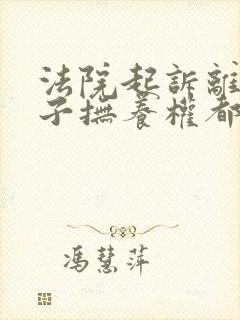 法院起訴離
子撫養權都
馮慧萍